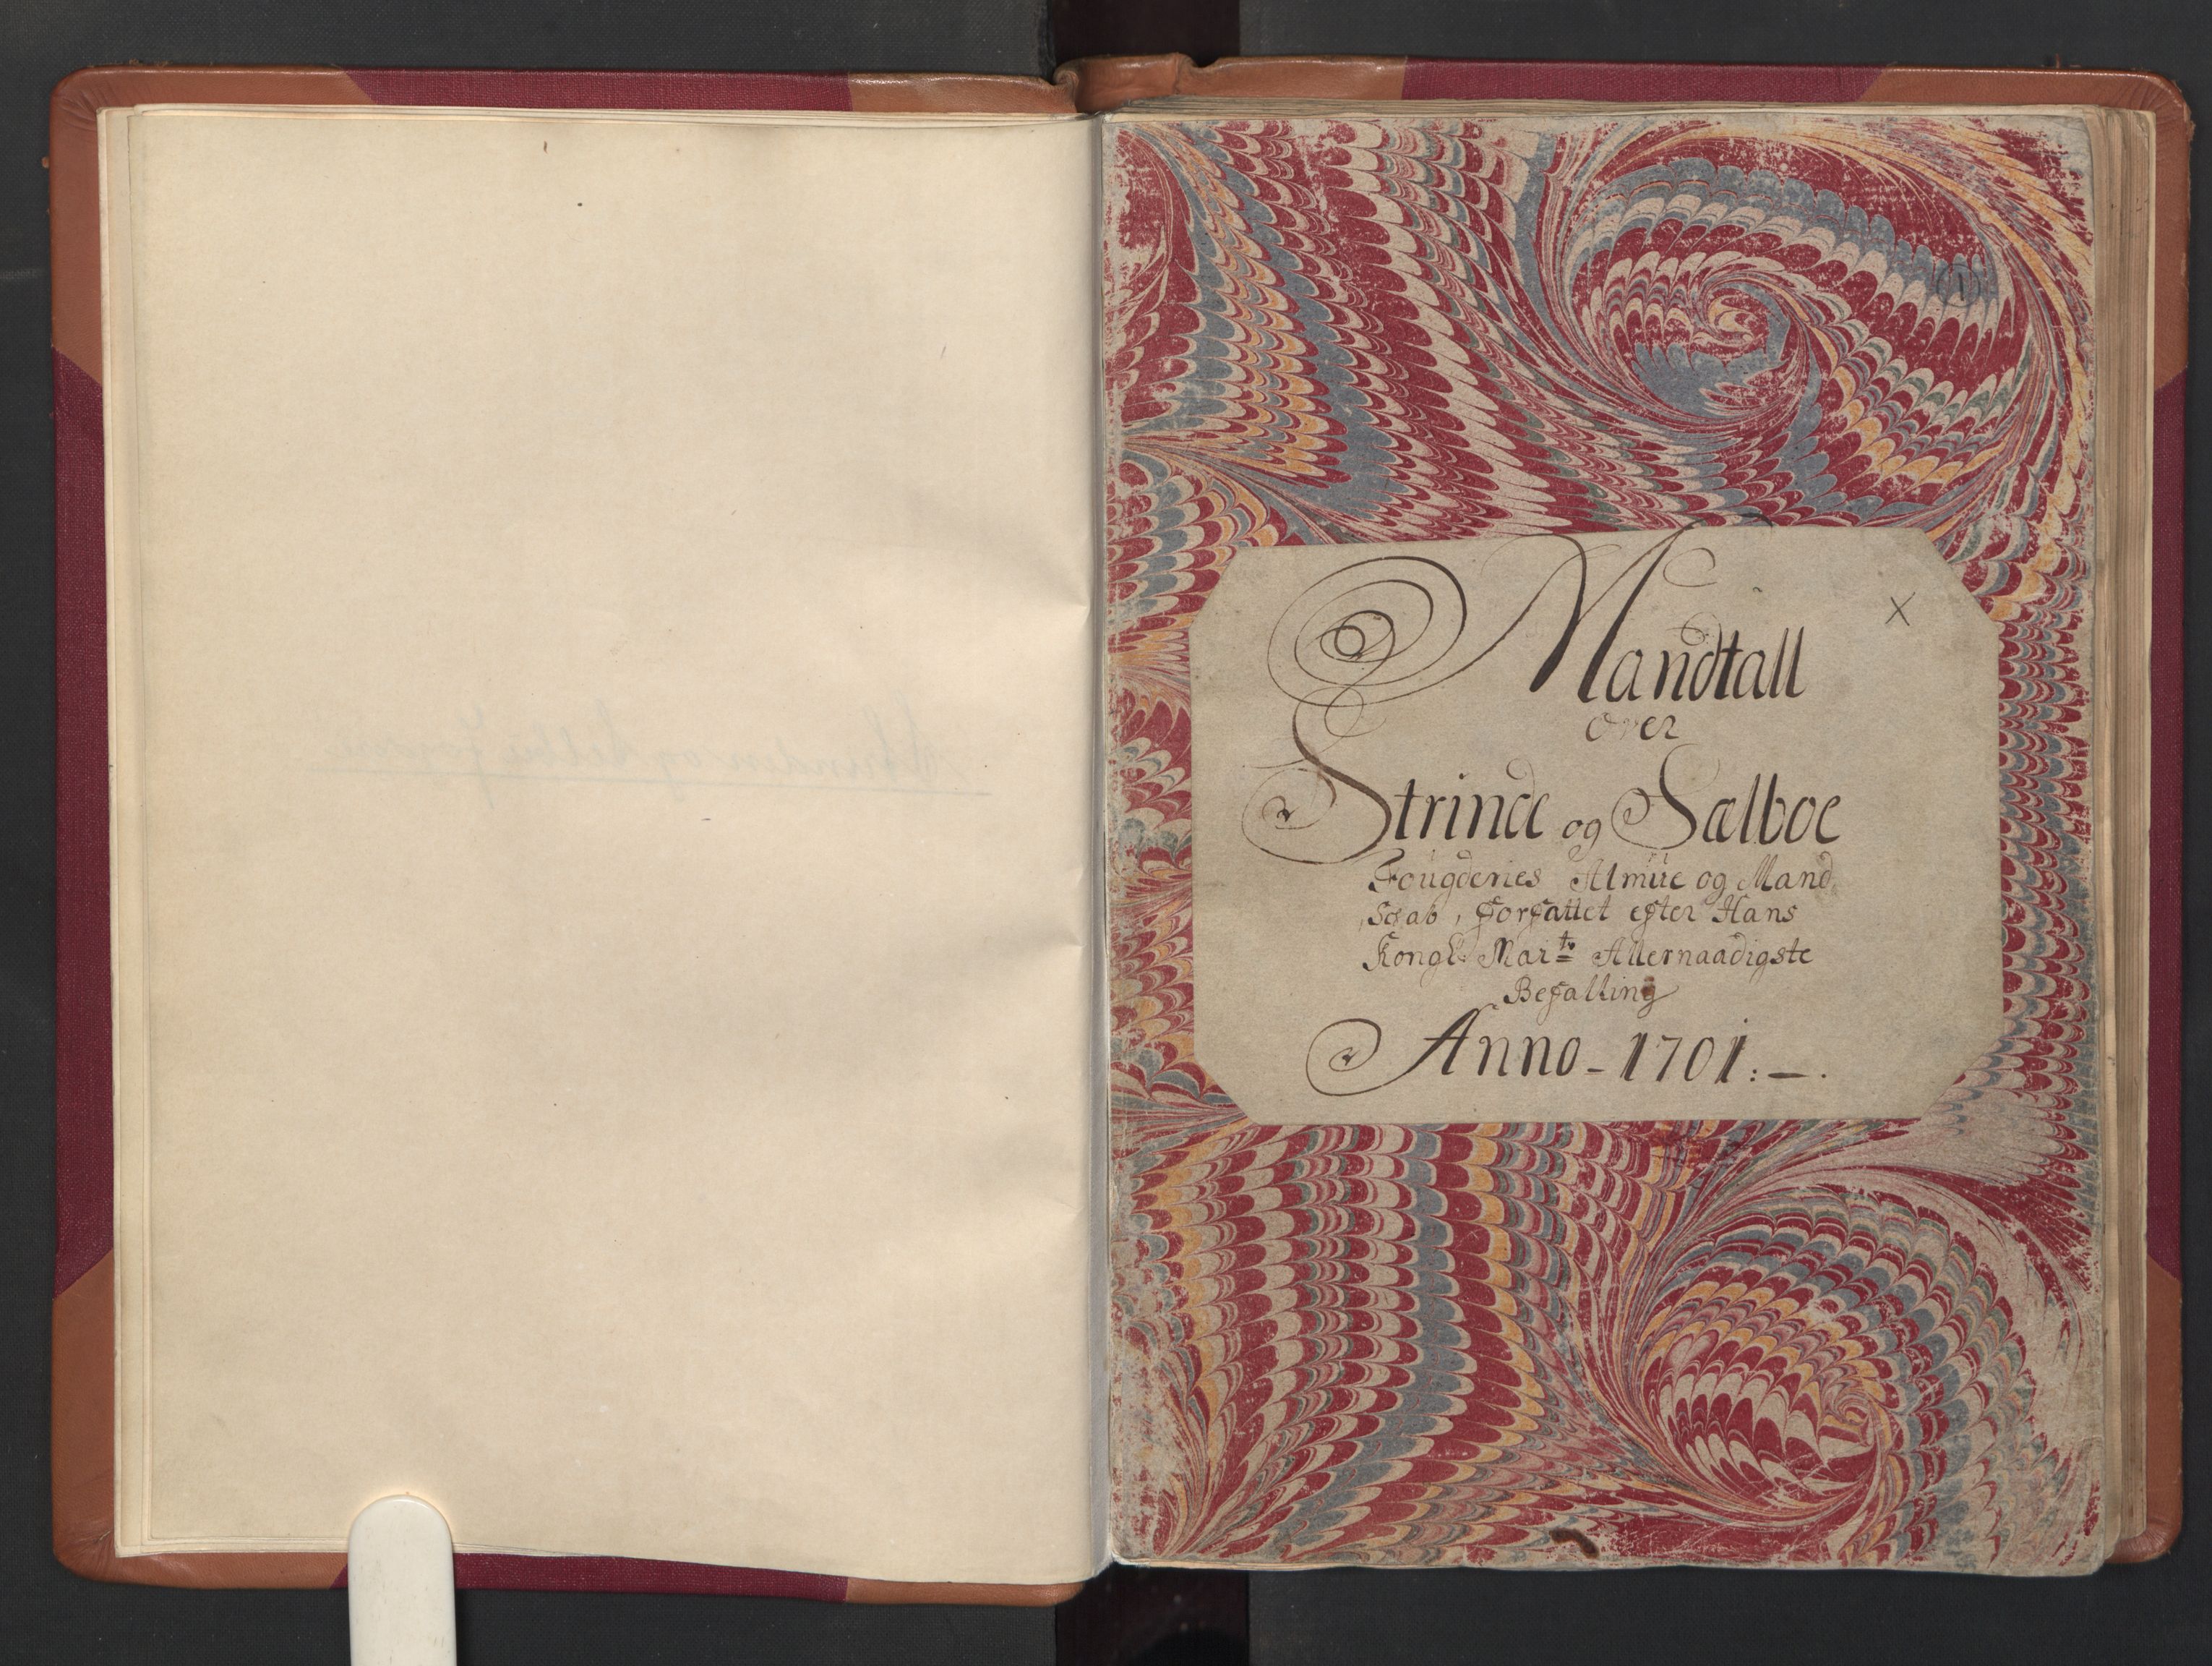 X
Mandtall
over
Strinde og Sælboe
Fougderies Almue og Mand
Scab, Forfattet efter Hans
Kongl: Maÿts Allernaadigste
Befalling
Anno - 1701: - .